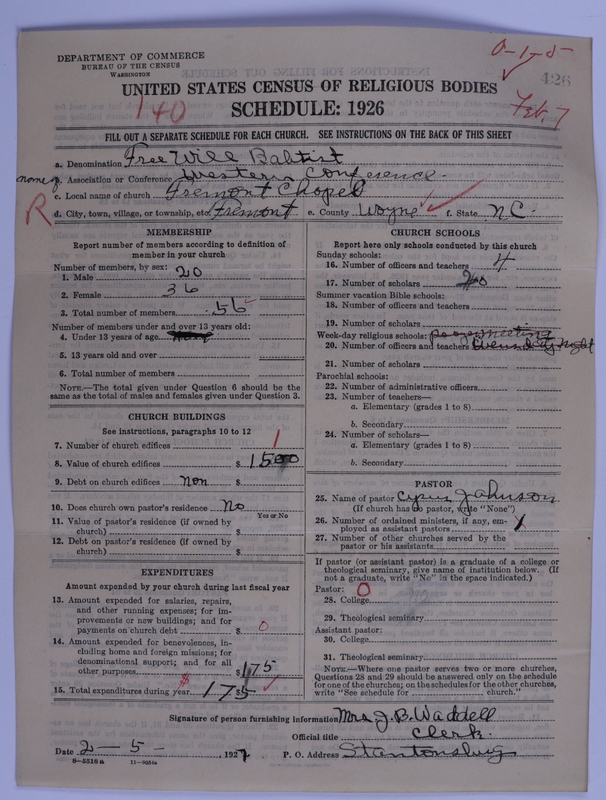 DEPARTMENT OF COMMERCE
BUREAU OF THE CENSUS
WASHINGTON
426
UNITED STATES CENSUS OF RELIGIOUS BODIES
140
SCHEDULE: 1926
Feb. 7
FILL OUT A SEPARATE SCHEDULE FOR EACH CHURCH. SEE INSTRUCTIONS ON THE BACK OF THIS SHEET
a. Denomination Free Will Babtist
b. Association or Conference Western Conference
c. Local name of church Fremont Chapel
R
d. City, town, village, or township, etc. Fremont e. County Wayne f. State N C.
MEMBERSHIP
Report number of members according to definition of member in your church
Number of members, by sex:
1. Male 20
2. Female 36
3. Total number of members 56
Number of members under and over 13 years old:
4. Under 13 years of age
5. 13 years old and over
6. Total number of members
NOTE.—The total given under Question 6 should be the same as the total of males and females given under Question 3.
CHURCH BUILDINGS
See instructions, paragraphs 10 to 12
7. Number of church edifices 1
8. Value of church edifices $ 1500
9. Debt on church edifices non $
10. Does church own pastor's residence? No
Yes or No
11. Value of pastor's residence (if owned by church) $
12. Debt on pastor's residence (if owned by church) $
EXPENDITURES
Amount expended by your church during last fiscal year
13. Amount expended for salaries, repairs, and other running expenses; for improvements or new buildings; and for payments on church debt $ 0
14. Amount expended for benevolences, including home and foreign missions; for denominational support; and for all other purposes $ 175
15. Total expenditures during year $ 175
CHURCH SCHOOLS
Report here only schools conducted by this church
Sunday schools:
16. Number of officers and teachers 4
17. Number of scholars
Summer vacation Bible schools:
18. Number of officers and teachers
19. Number of scholars
Week-day religious schools:
20. Number of officers and teachers
21. Number of scholars
Parochial schools:
22. Number of administrative officers
23. Number of teachers—
a. Elementary (grades 1 to 8)
b. Secondary
24. Number of scholars—
a. Elementary (grades 1 to 8)
b. Secondary
PASTOR
25. Name of pastor Cyrus Johnson
(If church has no pastor, write "None")
26. Number of ordained ministers, if any, employed as assistant pastors
27. Number of other churches served by the pastor or his assistants
If pastor (or assistant pastor) is a graduate of a college or theological seminary, give name of institution below. (If not a graduate, write "No" in the space indicated.)
Pastor: 0
28. College
29. Theological seminary
Assistant pastor:
30. College
31. Theological seminary
NOTE.—Where one pastor serves two or more churches, Questions 28 and 29 should be answered only on the schedule for one of the churches; on the schedules for the other churches, write "See schedule for church."
Signature of person furnishing information Mrs J. B. Waddell
Official title Clerk.
Date 2 - 5 - , 1927 P. O. Address Stantonsburg
8-5518a 11-9054a